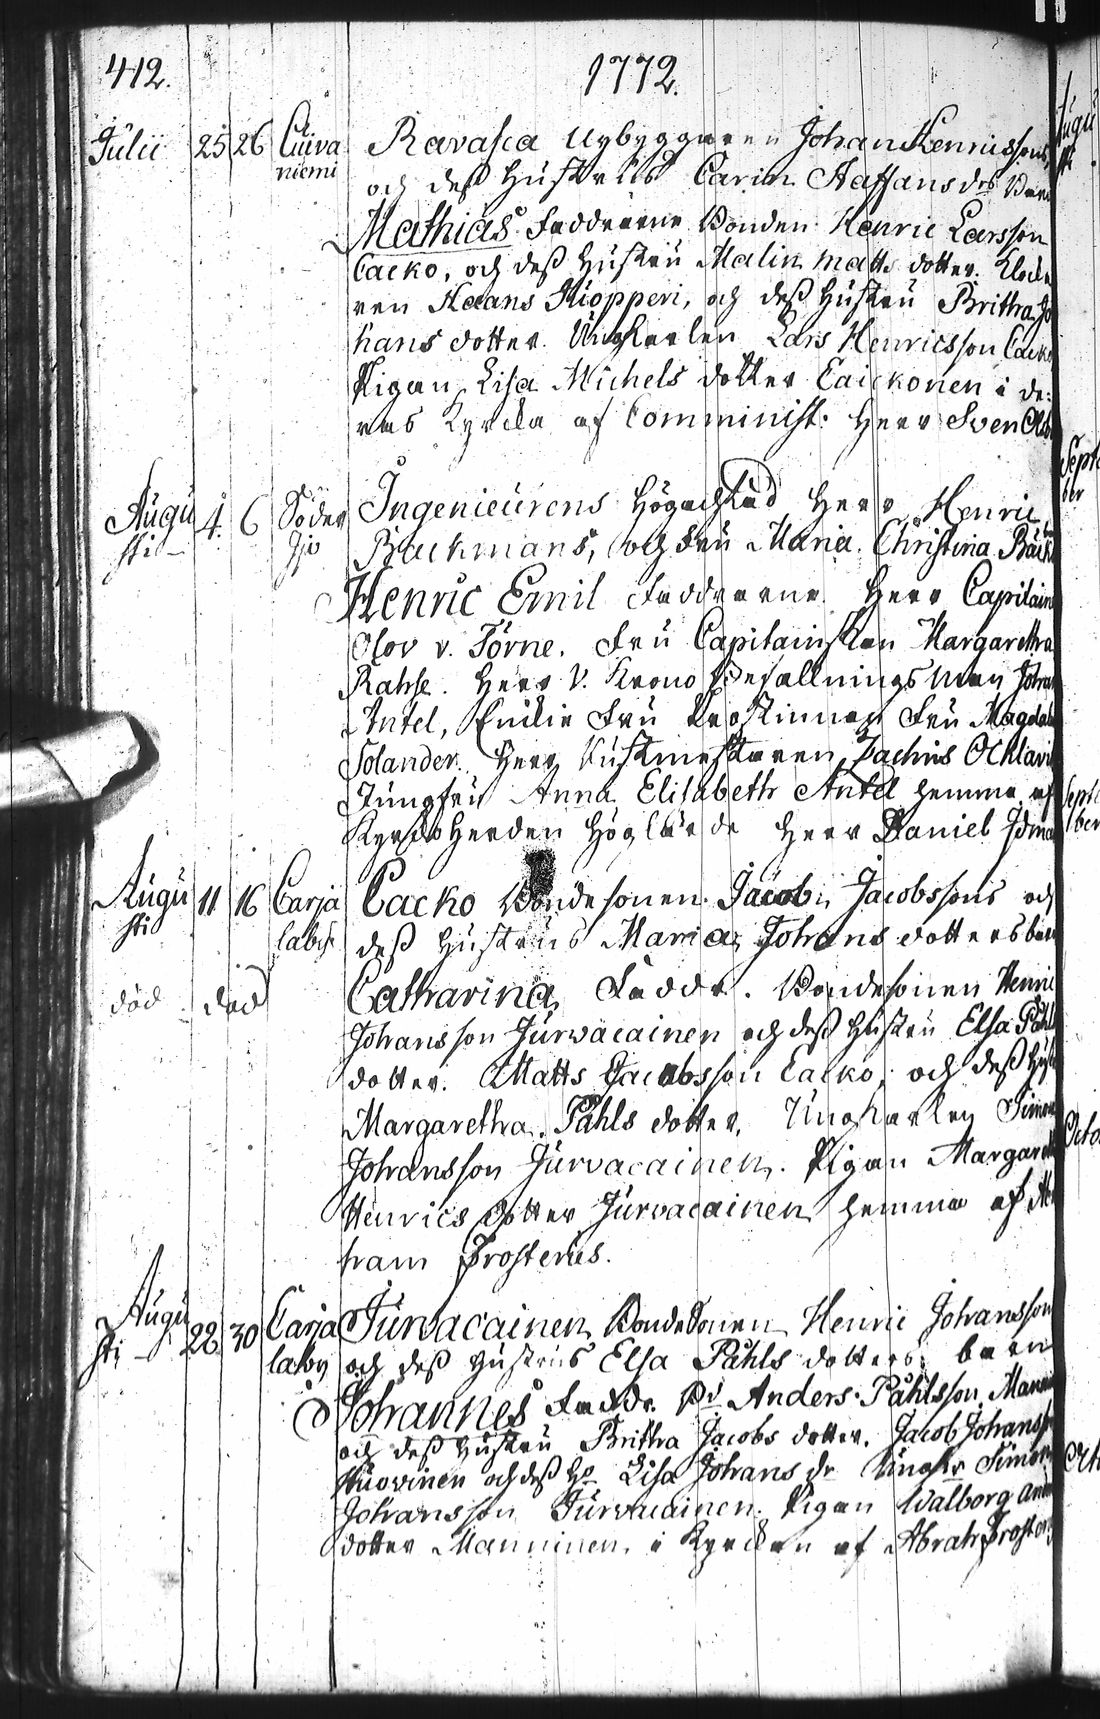 412. 1772.
Julii 25 26 Cuivaniemi Ravasca Nybyggaren Johan Henricssons
och deß hustrus Carin Staffans drs Barn
Mathias Faddrarne Bonden Henric Larsson
Cacko, och deß hustru Malin Matts dotter. Klocka
ren Staans Kiopperi, och deß hustru Brittha Jo
hans dotter. Ungkarlen Lars Henricsson Cacko
Pigan Lisa Michels dotter Caickonen i de:
ras Kyrcka af Comminist: Herr Sven
Augusti 4. 6 Söder Ingenieurens Högacktad Herr Henric
Backmans, och Fru Maria Christina
Henric Emil Faddrarne Herr Capitain
Olov v. Törne. Fru Capitainskan Margaretha
Herr V. Krono Befallningsman Johan
Antel, Fru Fru Magdal
Solander. Herr Rustmestaren Zachris
Jungfru Anna Elisabeth Antel hemma af
Kyrckoherden Höglärde Herr Daniel
Augusti 11 16 Carjalabÿ Cacko Bondesonen Jacob Jacobssons och
deß hustrus Maria Johans dotters barn
död död Catharina Faddr. Bondesonen Henric
Johansson Jurvacainen och deß hustru Elsa Påhls
dotter. Matts Jacobsson Cacko, och deß hust
Margaretha Påhls dotter, Ungkarlen Simon
Johansson Jurvacainen. Pigan Margareth
Henrics dotter Jurvacainen hemma af Ab
ham Frosterus.
Augusti 22 30 Carjalaby Jurvacainen Bondesonen Henric Johansson
och deß hustrus Elsa Påhls dotters barn
Johannes Faddr. Bd Anders Påhlsson
och deß hustru Brittha Jacobs dotter. Jacob Johanss
och deß Ho Lisa Johans dr Ungkr Simon
Johansson Jurvacainen. Pigan Walborg And
dotter Manninen i Kyrckan af Abrah Froster